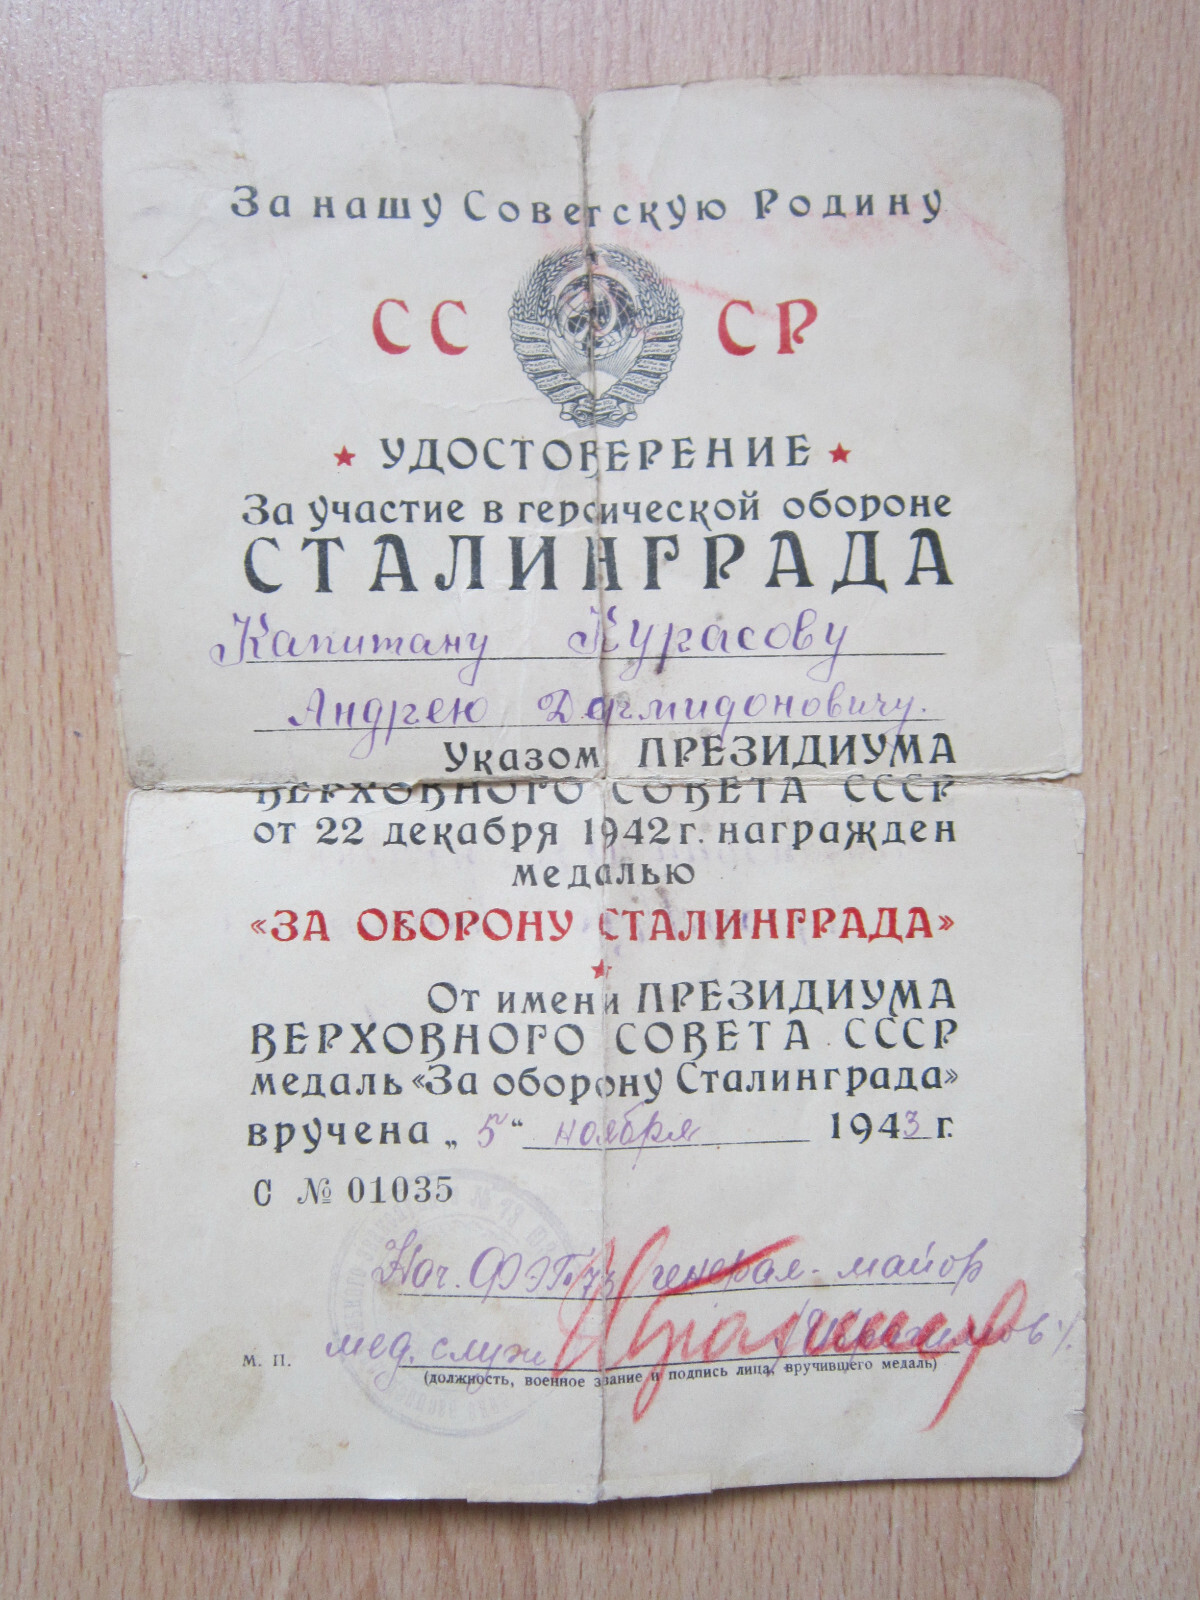 За нашу Советскую Родину
СССР
УДОСТОВЕРЕНИЕ
За участие в героической обороне
СТАЛИНГРАДА
Капитану Курасову
Андрею Дормидоновичу.
Указом ПРЕЗИДИУМА
ВЕРХОВНОГО СОВЕТА СССР
от 22 декабря 1942 г. награжден
медалью
«ЗА ОБОРОНУ СТАЛИНГРАДА»
От имени ПРЕЗИДИУМА
ВЕРХОВНОГО СОВЕТА СССР
медаль «За оборону Сталинграда»
вручена „5“ ноября 1943 г.
С № 01035
Нач. ФЭП 73 генерал-майор
мед. служ /Ибрагимов/.
М. П.
(должность, военное звание и подпись лица, вручившего медаль)